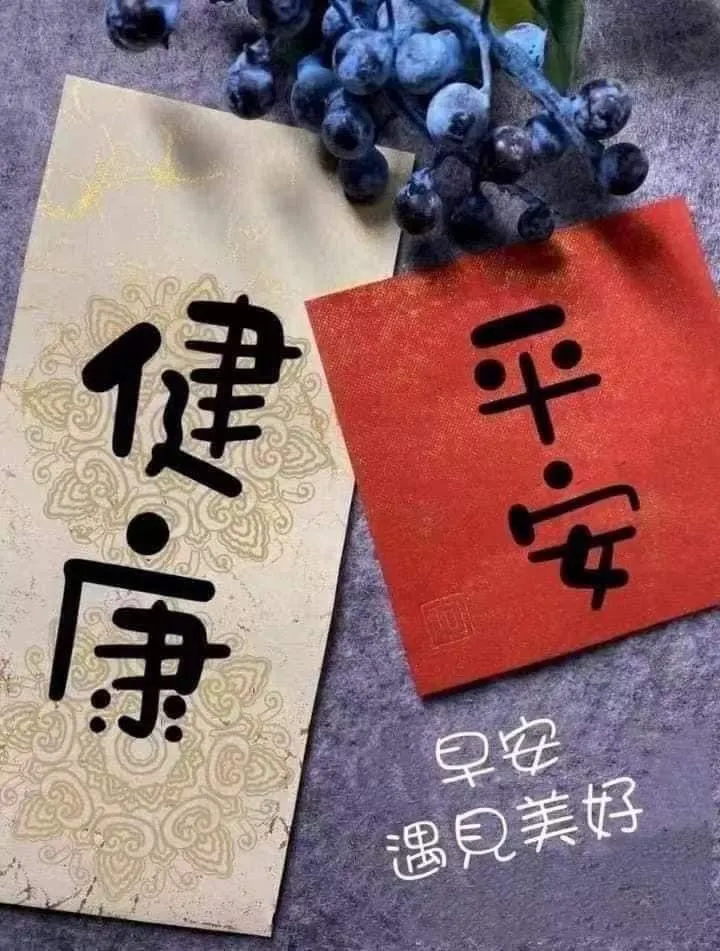 健康
平安
早安
遇見美好